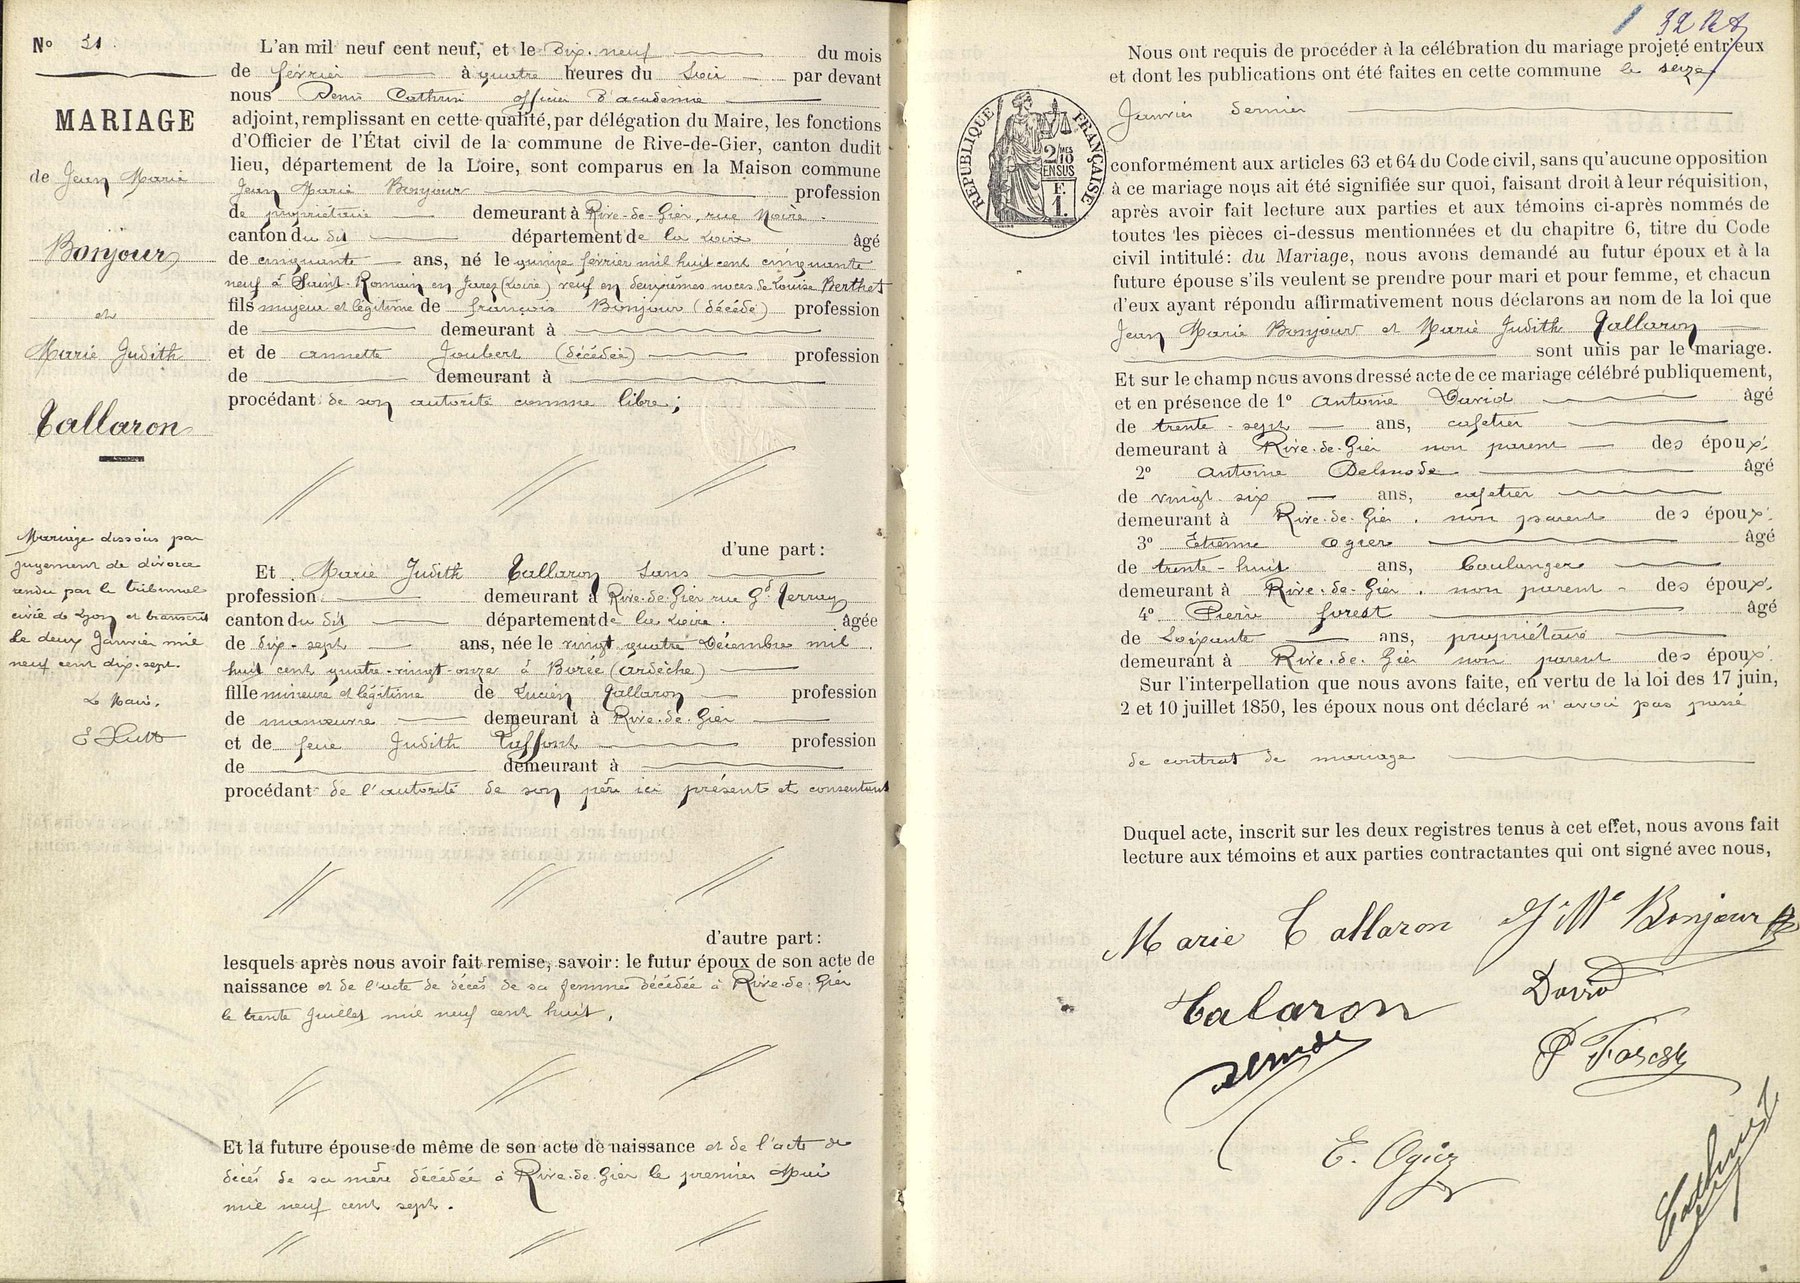 N° 21
MARIAGE
de Jean Marie
Bonjour
et
Marie Judith
Tallaron
Mariage dissous par
jugement de divorce
rendu par le tribunal
civil de Lyon et transcrit
le deux Janvier mil
neuf cent dix-sept.
Le Maire,
L'an mil neuf cent neuf, et le dix-neuf du mois
de février à quatre heures du Soir par devant
nous Denis Cathrin officier d'académie
adjoint, remplissant en cette qualité, par délégation du Maire, les fonctions
d'Officier de l'État civil de la commune de Rive-de-Gier, canton dudit
lieu, département de la Loire, sont comparus en la Maison commune
Jean Marie Bonjour profession
de propriétaire demeurant à Rive-de-Gier, rue Noire.
canton du dit département de la Loire âgé
de cinquante ans, né le quinze février mil huit cent cinquante
neuf à Saint-Romain en Jarez (Loire) veuf en deuxièmes noces de Louise Berthet
fils majeur et légitime de françois Bonjour (décédé) profession
de demeurant à
et de annette Joubert (décédée) profession
de demeurant à
procédant de son autorité comme libre;
d'une part :
Et Marie Judith Tallaron Sans
profession demeurant à Rive-de-Gier rue Gd
canton du dit département de la Loire. âgée
de dix-sept ans, née le vingt quatre Décembre mil
huit cent quatre-vingt-onze à Borée (Ardèche)
fille mineure et légitime de Lucien Tallaron profession
de manœuvre demeurant à Rive-de-Gier
et de feue Judith profession
de demeurant à
procédant de l'autorité de son père ici présent et consentant
d'autre part :
lesquels après nous avoir fait remise, savoir : le futur époux de son acte de
naissance et de l'acte de décès de sa femme décédée à Rive-de-Gier
le trente Juillet mil neuf cent huit.
Et la future épouse de même de son acte de naissance et de l'acte de
décès de sa mère décédée à Rive-de-Gier le premier Mai
mil neuf cent sept.
RÉPUBLIQUE FRANÇAISE
2/10 MES
EN SUS
F.
1.
Nous ont requis de procéder à la célébration du mariage projeté entr'eux
et dont les publications ont été faites en cette commune le seize
Janvier dernier
conformément aux articles 63 et 64 du Code civil, sans qu'aucune opposition
à ce mariage nous ait été signifiée sur quoi, faisant droit à leur réquisition,
après avoir fait lecture aux parties et aux témoins ci-après nommés de
toutes les pièces ci-dessus mentionnées et du chapitre 6, titre du Code
civil intitulé : du Mariage, nous avons demandé au futur époux et à la
future épouse s'ils veulent se prendre pour mari et pour femme, et chacun
d'eux ayant répondu affirmativement nous déclarons au nom de la loi que
Jean Marie Bonjour et Marie Judith Tallaron
sont unis par le mariage.
Et sur le champ nous avons dressé acte de ce mariage célébré publiquement,
et en présence de 1° Antoine David âgé
de trente-sept ans, cafetier
demeurant à Rive-de-Gier non parent des époux.
2° Antoine âgé
de vingt-six ans, cafetier
demeurant à Rive-de-Gier. non parent des époux.
3° Etienne Ogier âgé
de trente-huit ans, boulanger
demeurant à Rive-de-Gier. non parent des époux.
4° Pierre forest âgé
de Soixante ans, propriétaire
demeurant à Rive-de-Gier non parent des époux.
Sur l'interpellation que nous avons faite, en vertu de la loi des 17 juin,
2 et 10 juillet 1850, les époux nous ont déclaré n'avoir pas passé
de contrat de mariage
Duquel acte, inscrit sur les deux registres tenus à cet effet, nous avons fait
lecture aux témoins et aux parties contractantes qui ont signé avec nous,
Marie Tallaron J Me Bonjour
Talaron David
P Forest
E. Ogier